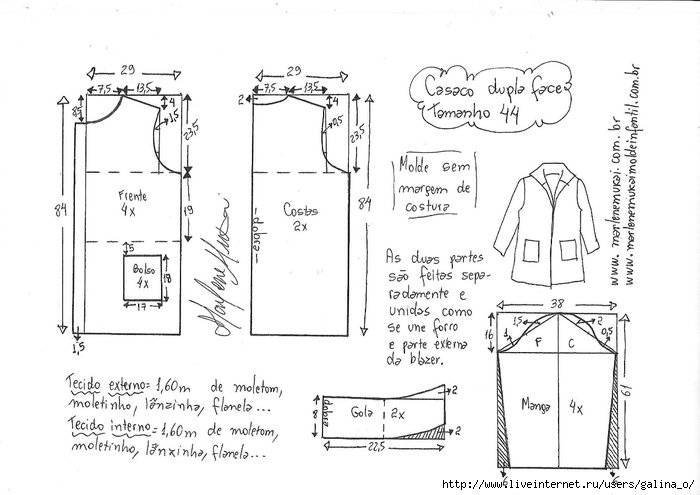 29
7,5 13,5
4
8,5
1,5
23,5
84
19
Frente
4x
5
Bolso
4x
18
17
1,5
29
7,5 13,5
2
4
0,5
23,5
84
Costas
2x
Marlene Mukai
Casaco dupla face
Tamanho 44
Molde sem
margem de
costura
www.marlenemukai.com.br
www.marlenemukaimoldeinfantil.com.br
As duas partes
são feitas sepa-
radamente e
unidas como
se une forro
e parte externa
da blazer.
38
16
1,5
2
1
0,5
F C
61
Manga 4x
Tecido externo= 1,60m de moletom,
moletinho, lãnzinha, flanela...
Tecido interno= 1,60m de moletom,
moletinho, lãnzinha, flanela...
dobra
8
Gola 2x
2
2
22,5
http://www.liveinternet.ru/users/galina_o/